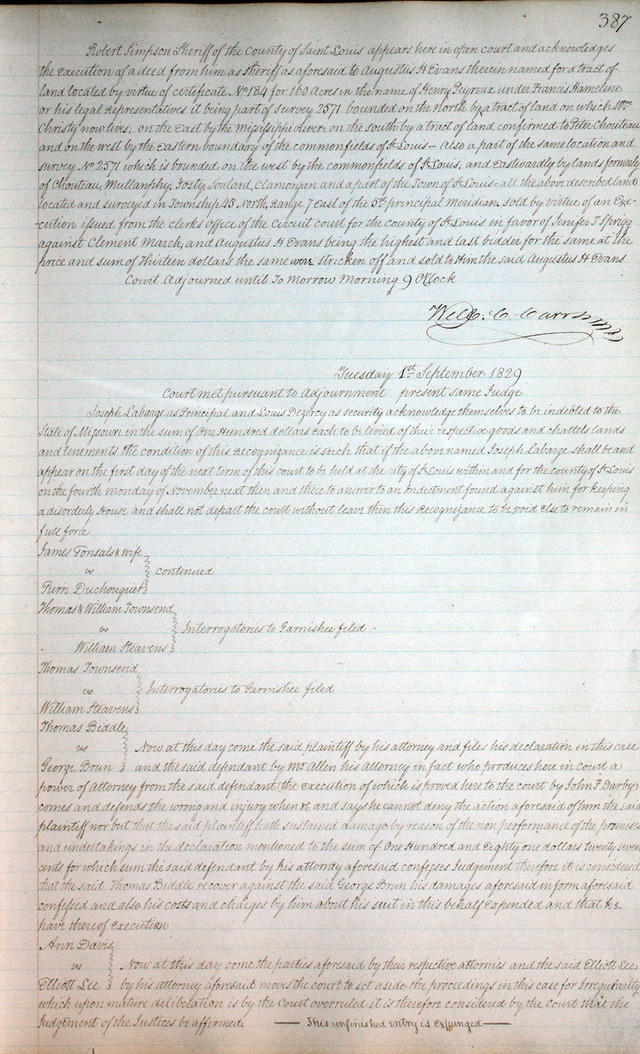 387
Robert Simpson Sheriff of the County of Saint Louis appears here in open court and acknowledges
the Execution of a deed from him as Sheriff as aforesaid to Augustus H Evans therein named for a tract of
land located by virtue of certificate No 184 for 160 Acres in the name of Henry Peyroux under Francis
or his legal Representatives it being part of survey 2571 bounded on the North by a tract of land on which Wm
Christy now lives; on the East by the Mississippi river; on the south by a tract of land confirmed to Peter Chouteau
and on the west by the Eastern boundary of the commonfields of St Louis – Also a part of the same location and
survey No 2571 which is bounded on the west by the commonfields of St Louis, and Eastwardly by lands formerly
of Chouteau, Mullanphy, Soulard, Clamorgan and a part of the Town of St Louis – all the above described land
located and surveyed in Township 45 North, Range 7 East of the 5th principal Meridian. sold by virtue of an Exe-
cution issued from the clerks office of the Circuit court for the county of St Louis in favor of Jenifer T Sprigg
against Clement March, and Augustus H Evans being the highest and last bidder for the same at the
price and sum of Thirteen dollars the same was stricken off and sold to Him the said Augustus H Evans
Court Adjourned until To Morrow Morning 9 OClock
Wm. C. Carr
Tuesday 1st September 1829
Court met pursuant to Adjournment present same Judge
Joseph Labarge as Principal and Louis Dezercy as security acknowledge themselves to be indebted to the
State of Missouri in the sum of One Hundred dollars Each to be levied of their respective goods and chattels lands
and tenements the condition of this Recognizance is such that if the above named Joseph Labarge shall be and
appear on the first day of the next term of this court to be held at the city of St Louis within and for the county of St Louis
on the fourth monday of November next then and there to answer to an indictment found against him for keeping
a disorderly House and shall not depart the court without leave then this Recognizance to be void Else to remain in
full force
James Tonsals & wife
vs continued
Duchouquet
Thomas & William Townsend
vs Interrogatories to Garnishee filed
William Steavens
Thomas Townsend
vs Interrogatories to Garnishee filed
William Steavens
Thomas Biddle
vs Now at this day come the said plaintiff by his attorney and files his declaration in this case
George Brun and the said defendant by Mr Allen his Attorney in fact who produces here in court a
power of Attorney from the said defendant (the Execution of which is proved here to the court by John F Darby)
comes and defends the wrong and injury when &c and says he cannot deny the action aforesaid of him the said
plaintiff nor but that the said plaintiff hath sustained damage by reason of the non performance of the promises
and undertakings in the declaration mentioned to the sum of One Hundred and Eighty one dollars twenty seven
cents for which sum the said defendant by his attorney aforesaid confesses Judgement therefore it is considered
that the said Thomas Biddle recover against the said George Brun his damages aforesaid in form aforesaid
confessed and also his costs and charges by him about his suit in this behalf Expended and that he
have thereof Execution
Ann Davis
vs Now at this day come the parties aforesaid by their respective attornies and the said Elliott Lee
Elliott Lee by his attorney aforesaid moves the court to set aside the proceedings in this case for Irregularity
which upon mature deliberation is by the Court overruled it is therefore considered by the Court that the
Judgement of the Justices be affirmed — This unfinished entry is expunged —